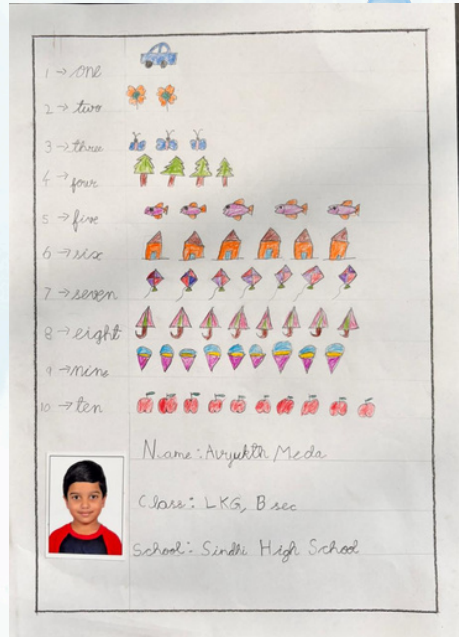 1 → one
2 → two
3 → three
4 → four
5 → five
6 → six
7 → seven
8 → eight
9 → nine
10 → ten
Name: Avyukth Meda
Class: LKG, B sec
School: Sindhi High School